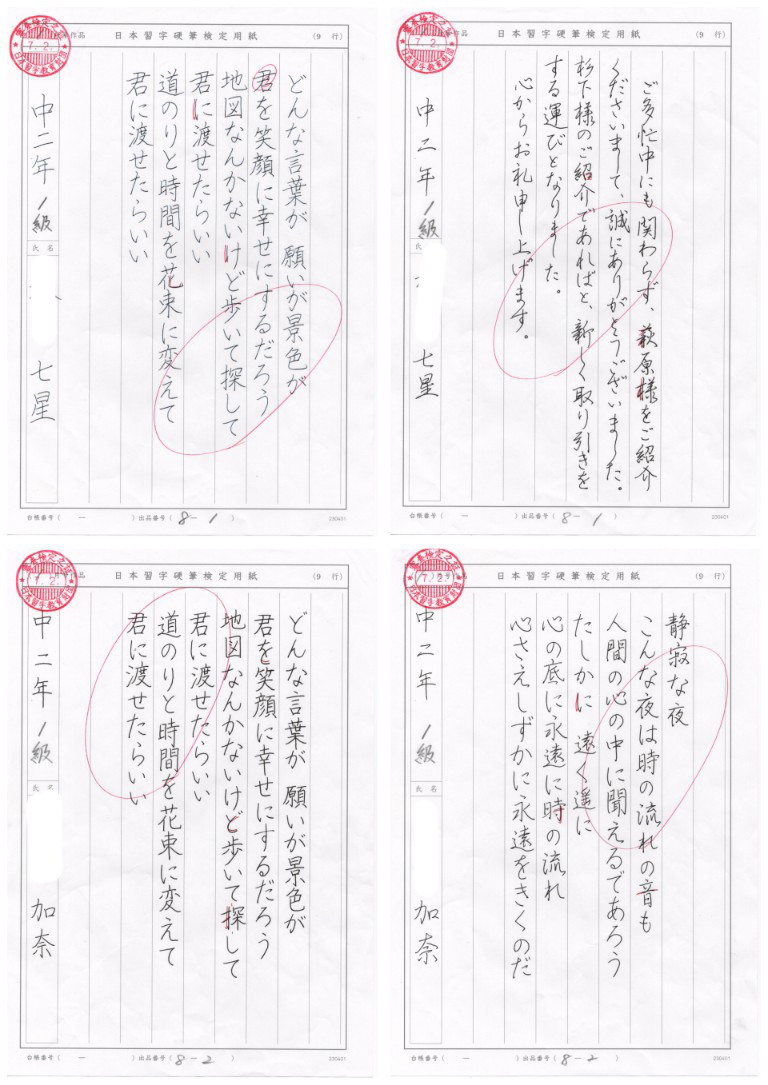 作品 日本習字硬筆検定用紙 (9 行)
どんな言葉が 願いが景色が
君を笑顔に幸せにするだろう
地図なんかないけど歩いて探して
君に渡せたらいい
道のりと時間を花束に変えて
君に渡せたらいい
中二年 1級
氏名
七星
台帳番号( — )出品番号( 8-1 )
230401
日本習字硬筆検定用紙 (9 行)
ご多忙中にも関わらず、萩原様をご紹介
くださいまして、誠にありがとうございました。
杉下様のご紹介であればと、新しく取り引きを
する運びとなりました。
心からお礼申し上げます。
中二年 1級
氏
七星
台帳番号( — )出品番号( 8-1 )
230401
作品 日本習字硬筆検定用紙 (9 行)
どんな言葉が 願いが景色が
君を笑顔に幸せにするだろう
地図なんかないけど歩いて探して
君に渡せたらいい
道のりと時間を花束に変えて
君に渡せたらいい
中二年 1級
氏名
加奈
台帳番号( — )出品番号( 8-2 )
230401
日本習字硬筆検定用紙 (9 行)
静寂な夜
こんな夜は時の流れの音も
人間の心の中に聞えるであろう
たしかに 遠く遥に
心の底に永遠に時の流れ
心さえしずかに永遠をきくのだ
中二年 1級
氏名
加奈
台帳番号( — )出品番号( 8-2 )
230401